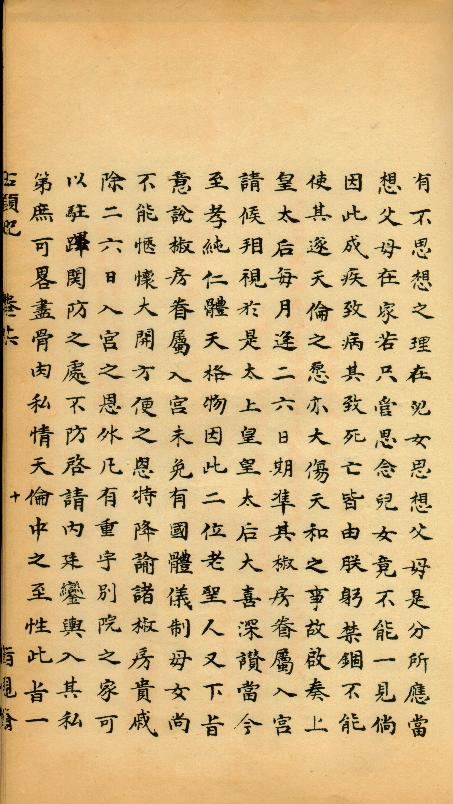 有不思想之理在兒女思想父母是分所應當
想父母在家若只管思念兒女竟不能一見倘
因此成疾致病其致死亡皆由朕躬禁錮不能
使其遂天倫之愿亦大傷天和之事故啟奏上
皇太后每月逢二六日期準其椒房眷屬入宮
請候相視於是太上皇皇太后大喜深讚當今
至孝純仁體天格物因此二位老聖人又下旨
意說椒房眷屬入宮未免有國體儀制母女尚
不能愜懷大開方便之恩特降諭諸椒房貴戚
除二六日入宮之恩外凡有重宇別院之家可
以駐蹕関防之處不防啓請內廷鑾輿入其私
第庶可畧盡骨肉私情天倫中之至性此旨一
石頭記 卷十六 十